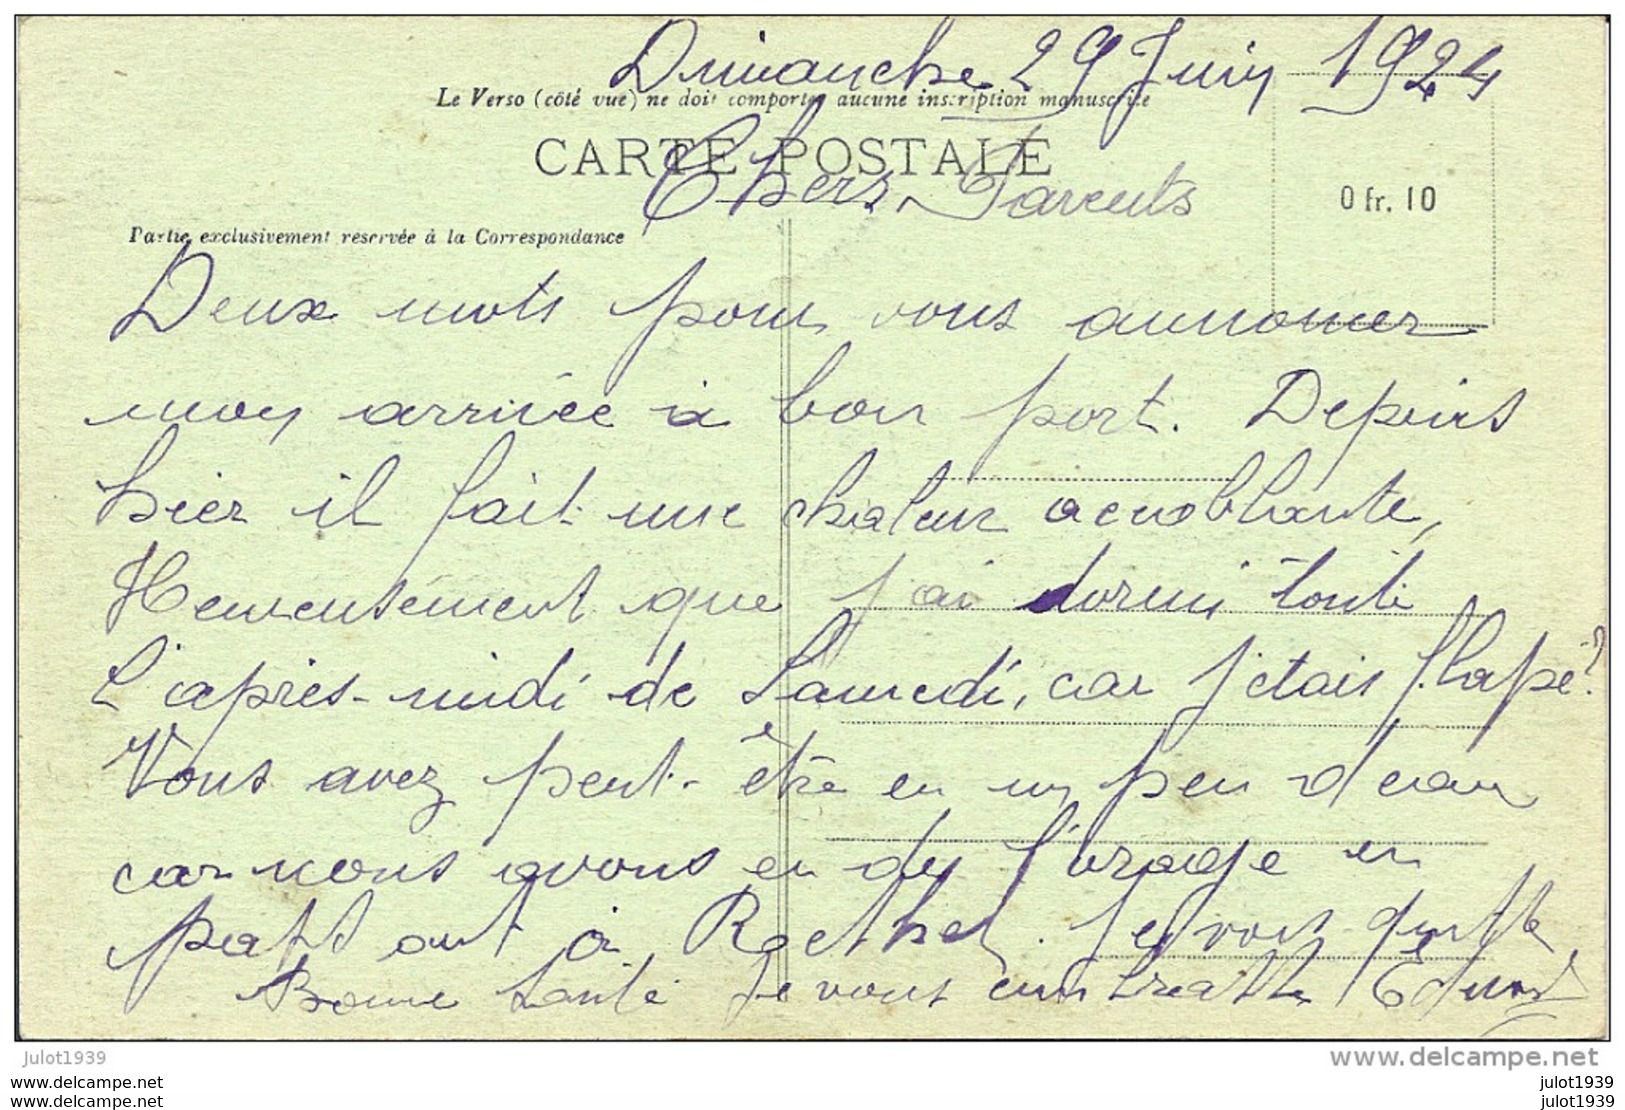 Dimanche 29 Juin 1924
Le Verso (côté vue) ne doit comporter aucune inscription manuscrite
CARTE POSTALE
Chers Parents
0 fr. 10
Partie exclusivement reservée à la Correspondance
Deux mots pour vous annoncer
mon arrivée à bon port. Depuis
hier il fait une chaleur accablante,
Heureusement que j'ai dormi toute
l'après-midi de Samedi, car j'étais flapé?
Vous avez peut-être eu un peu d'eau
car nous avons eu de l'orage en
partant à Rethel. Je vous quitte
Bonne Santé Je vous embrasse
julot1939
www.delcampe.net
julot1939
www.delcampe.com
www.delcampe.com
julot1939
julot1939